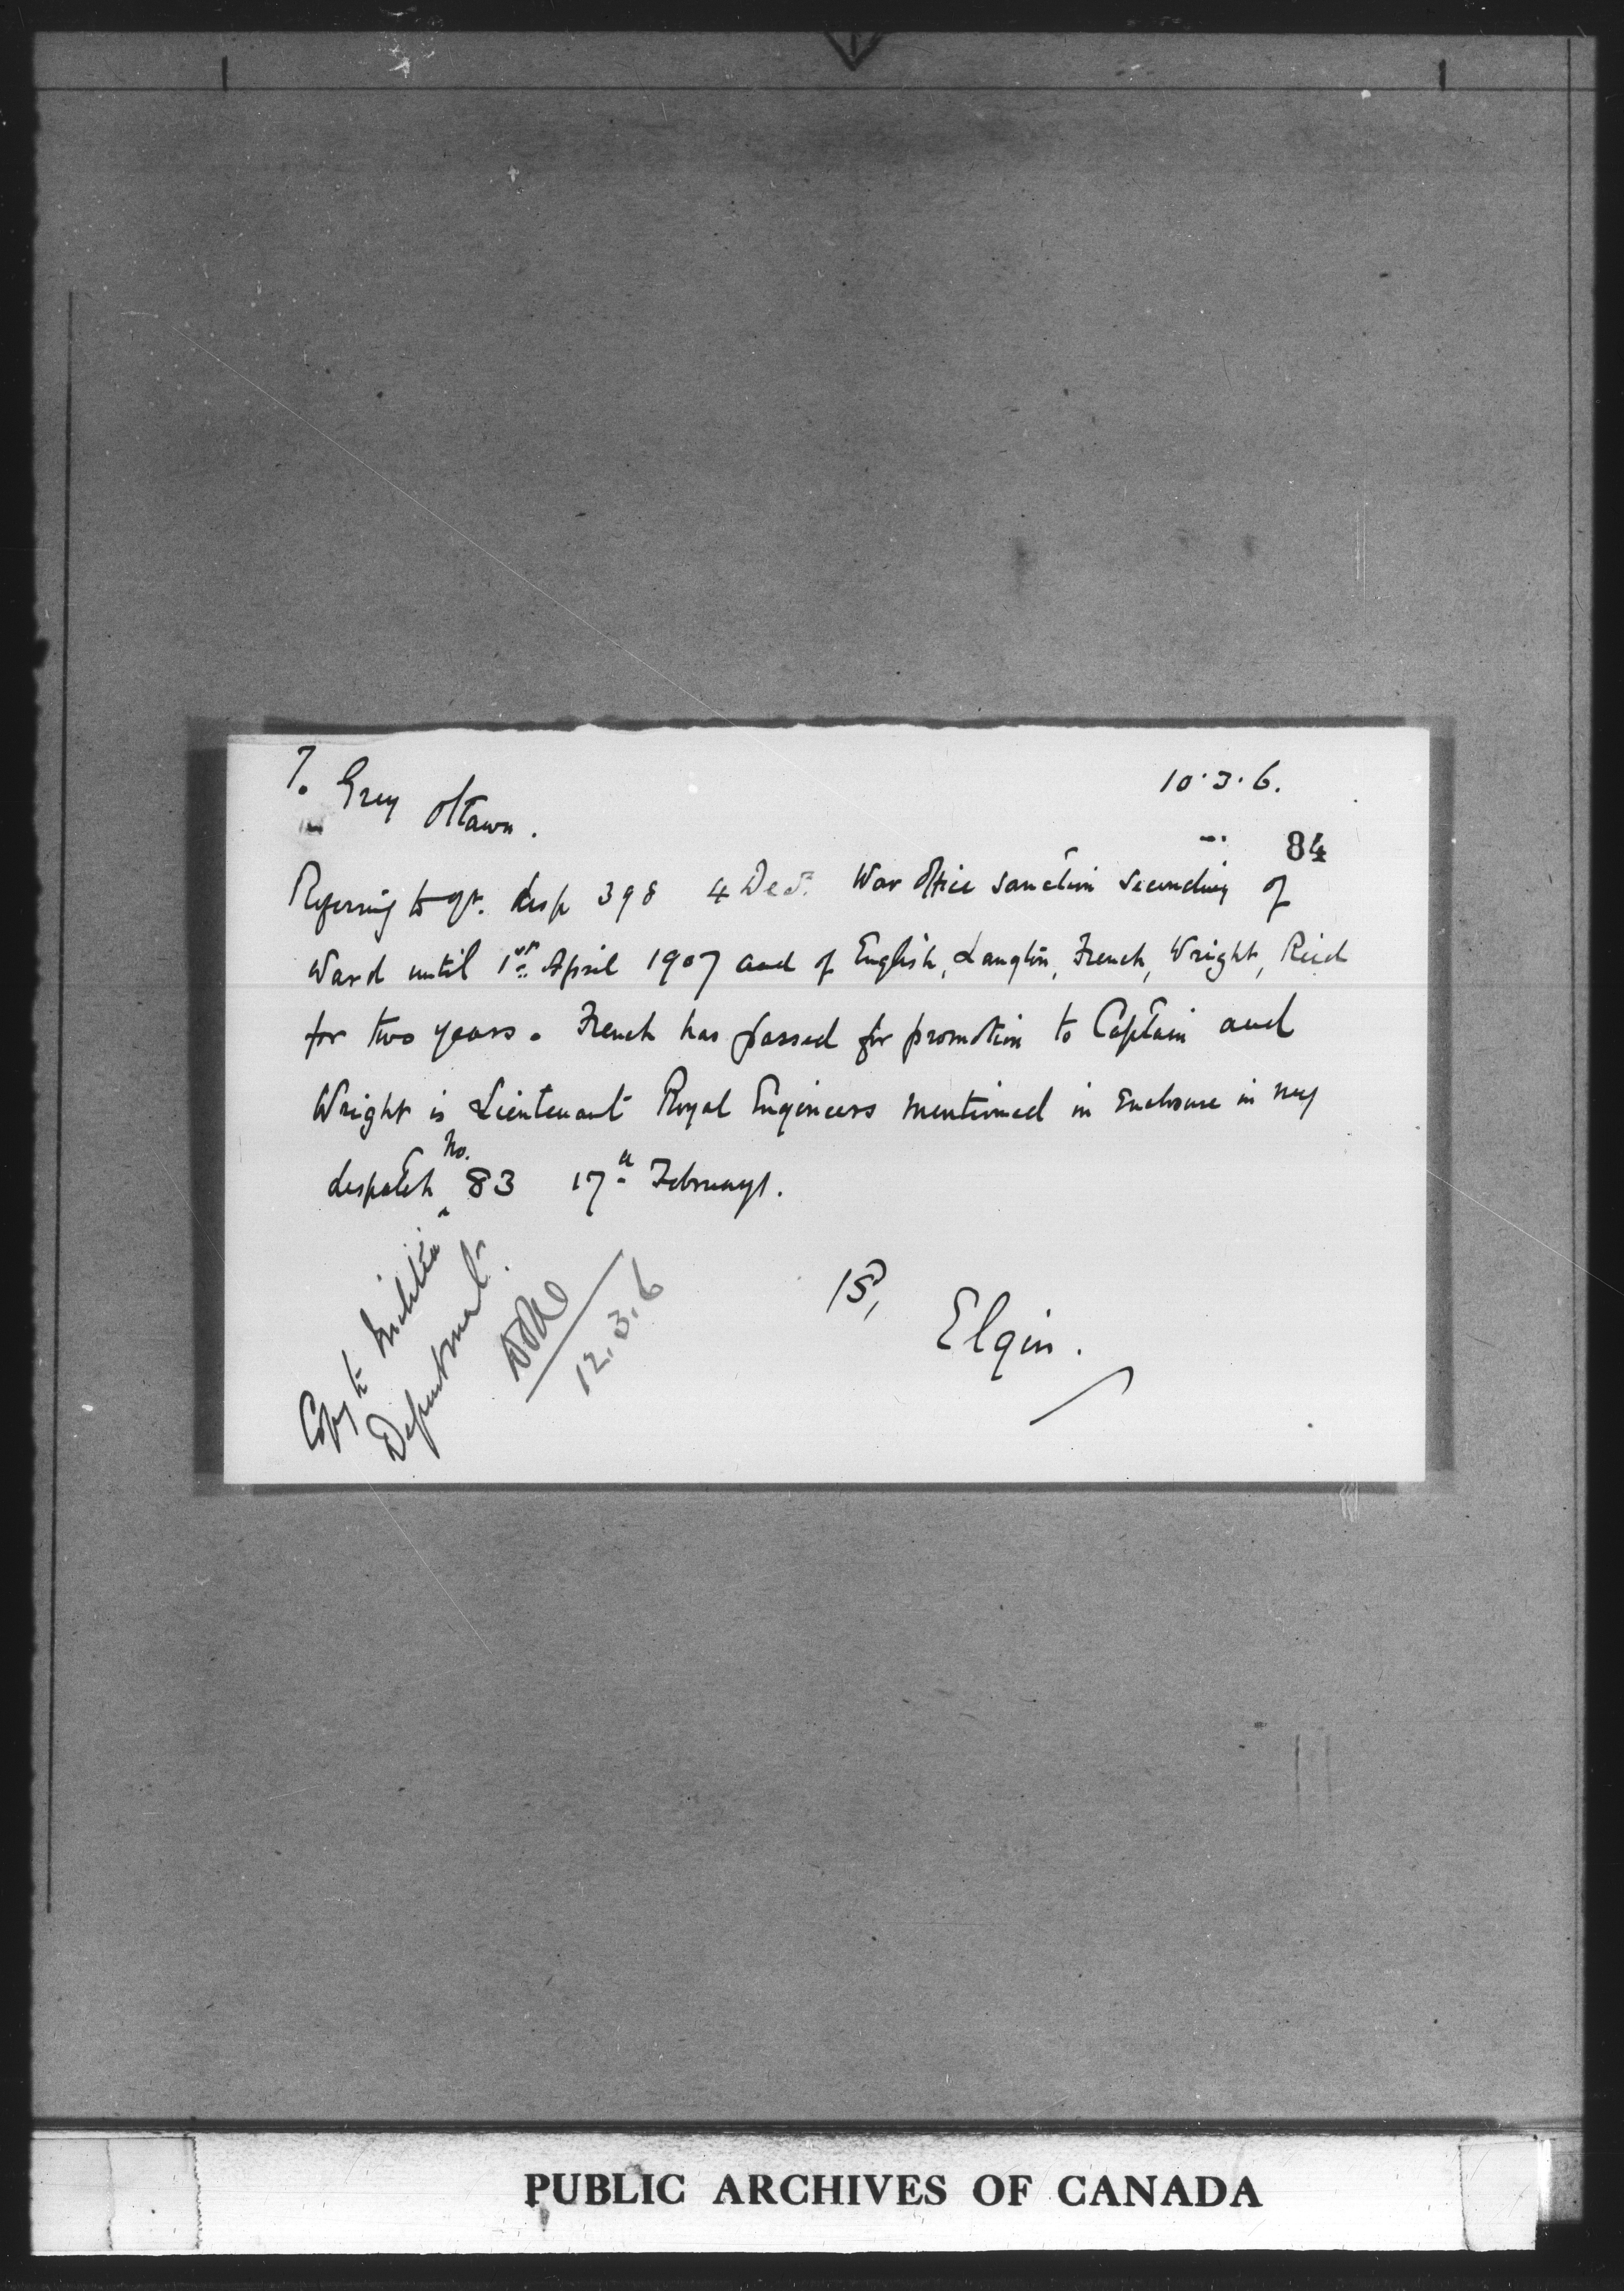 To Grey Ottawa.
10.3.6.
84
Referring to yr. desp 398 4 Dec. War Office sanction seconding of
Ward until 1st April 1907 and of English, Langton, French, Wright, Reid
for two years. French has passed for promotion to Captain and
Wright is Lieutenant Royal Engineers mentioned in enclosure in my
despatch No. 83 17th February.
Elgin.
Copy to Militia
Department.
12.3.6
PUBLIC ARCHIVES OF CANADA